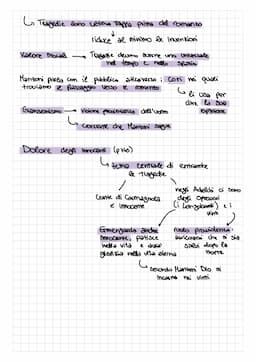 Tragedie sono ultima tappa prima del romanzo
ridurre al minimo le invenzioni
Valore Sociale → Tragedie devono avere una universale
nel tempo e nello spazio
Manzoni parla con il pubblico attraverso i CORI nei quali
troviamo il passaggio verso il romanzo
li usa per
dare la sua
opinione
Giansenismo → Visione pessimistica dell'uomo
corrente che Manzoni segue
Dolore degli innocenti (p 110)
tema centrale di entrambe
le Tragedie
Conte di Carmagnola
è innocente
negli Adelchi ci sono
degli Oppressori
(i Longobardi) e i
vinti
Ermengarda anche
innocente, patisce
nella vita e avrà
giustizia nella vita eterna
ruolo provvidenza:
sia dopo la
morte
secondo Manzoni Dio si
incarna nei vinti